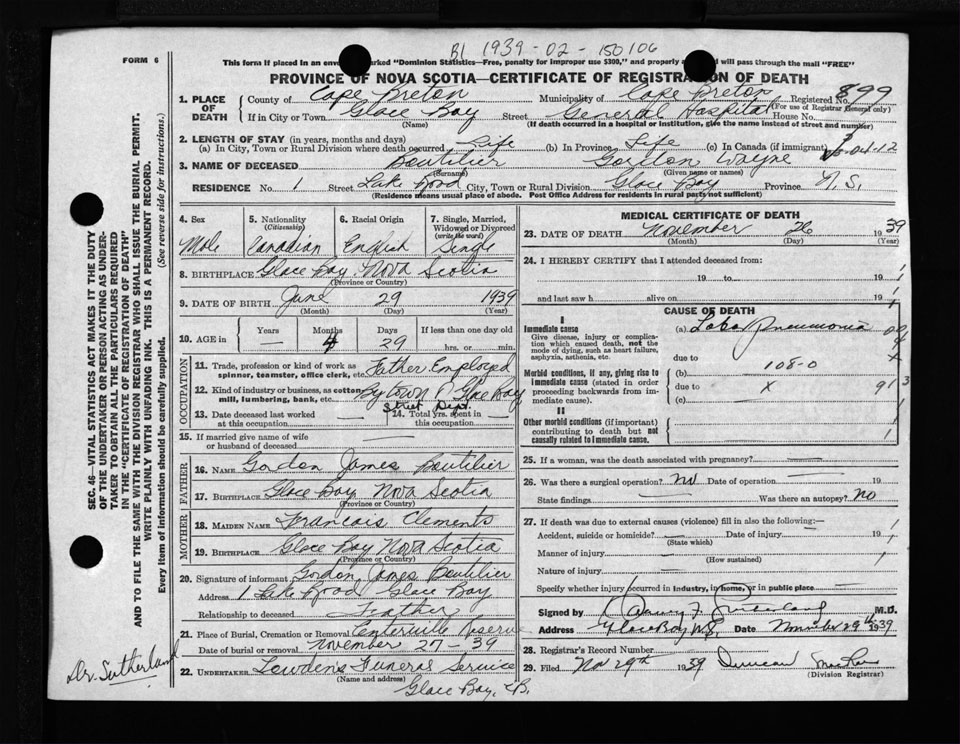 B1 1939-02-150106
FORM 6
This form if placed in an marked "Dominion Statistics—Free, penalty for improper use $300," and properly will pass through the mail "FREE"
PROVINCE OF NOVA SCOTIA—CERTIFICATE OF REGISTRATION OF DEATH
1. PLACE OF DEATH County of Cape Breton Municipality of Cape Breton Registered No. 899
(For use of Registrar General only)
If in City or Town Glace Bay Street General Hospital House No.
(Name) (If death occurred in a hospital or institution, give the name instead of street and number)
2. LENGTH OF STAY (in years, months and days)
(a) In City, Town or Rural Division where death occurred Life (b) In Province Life (c) In Canada (if immigrant)
3. NAME OF DECEASED Boutilier Gordon Wayne
(Surname) (Given name or names)
RESIDENCE No. 1 Street Lake Road City, Town or Rural Division Glace Bay Province N.S.
(Residence means usual place of abode. Post Office Address for residents in rural parts not sufficient)
4. Sex 5. Nationality (Citizenship) 6. Racial Origin 7. Single, Married, Widowed or Divorced (write the word)
Male Canadian English Single
8. BIRTHPLACE Glace Bay Nova Scotia
(Province or Country)
9. DATE OF BIRTH June 29 1939
(Month) (Day) (Year)
10. AGE in Years Months Days If less than one day old
— 4 29 hrs. or min.
OCCUPATION
11. Trade, profession or kind of work as spinner, teamster, office clerk, etc. Father Employed
12. Kind of industry or business, as cotton mill, lumbering, bank, etc. By town of Glace Bay
Street Dept.
13. Date deceased last worked at this occupation — 14. Total yrs. spent in this occupation —
15. If married give name of wife or husband of deceased —
FATHER
16. NAME Gordon James Boutilier
17. BIRTHPLACE Glace Bay Nova Scotia
(Province or Country)
MOTHER
18. MAIDEN NAME Francais Clements
19. BIRTHPLACE Glace Bay Nova Scotia
(Province or Country)
20. Signature of informant Gordon James Boutilier
Address 1 Lake Road Glace Bay
Relationship to deceased Father
21. Place of Burial, Cremation or Removal Centerville Reserve
Date of burial or removal November 27-39
22. UNDERTAKER Funeral Service
(Name and address)
Glace Bay, C.B.
MEDICAL CERTIFICATE OF DEATH
23. DATE OF DEATH November 26 1939
(Month) (Day) (Year)
24. I HEREBY CERTIFY that I attended deceased from:
19 to 19
and last saw h alive on 19
CAUSE OF DEATH
I
Immediate cause (a) Lobar Pneumonia
Give disease, injury or complication which caused death, not the mode of dying, such as heart failure, asphyxia, asthenia, etc.
due to
(b) 108-0
Morbid conditions, if any, giving rise to immediate cause (stated in order proceeding backwards from immediate cause).
due to X
(c)
II
Other morbid conditions (if important) contributing to death but not causally related to immediate cause.
25. If a woman, was the death associated with pregnancy? —
26. Was there a surgical operation? No Date of operation —
State findings — Was there an autopsy? No
27. If death was due to external causes (violence) fill in also the following:—
Accident, suicide or homicide? — Date of injury 19
(State which)
Manner of injury —
(How sustained)
Nature of injury —
Specify whether injury occurred in industry, in home, or in public place
Signed by Sutherland M.D.
Address Glace Bay N.S. Date November 29th 1939
28. Registrar's Record Number
29. Filed Nov 29th 1939 Duncan
(Division Registrar)
SEC. 46—VITAL STATISTICS ACT MAKES IT THE DUTY OF THE UNDERTAKER OR PERSON ACTING AS UNDERTAKER TO OBTAIN ALL THE PARTICULARS REQUIRED IN THE "CERTIFICATE OF REGISTRATION OF DEATH" AND TO FILE THE SAME WITH THE DIVISION REGISTRAR WHO SHALL ISSUE THE BURIAL PERMIT.
WRITE PLAINLY WITH UNFADING INK. THIS IS A PERMANENT RECORD.
Every item of information should be carefully supplied. (See reverse side for instructions.)
Dr. Sutherland